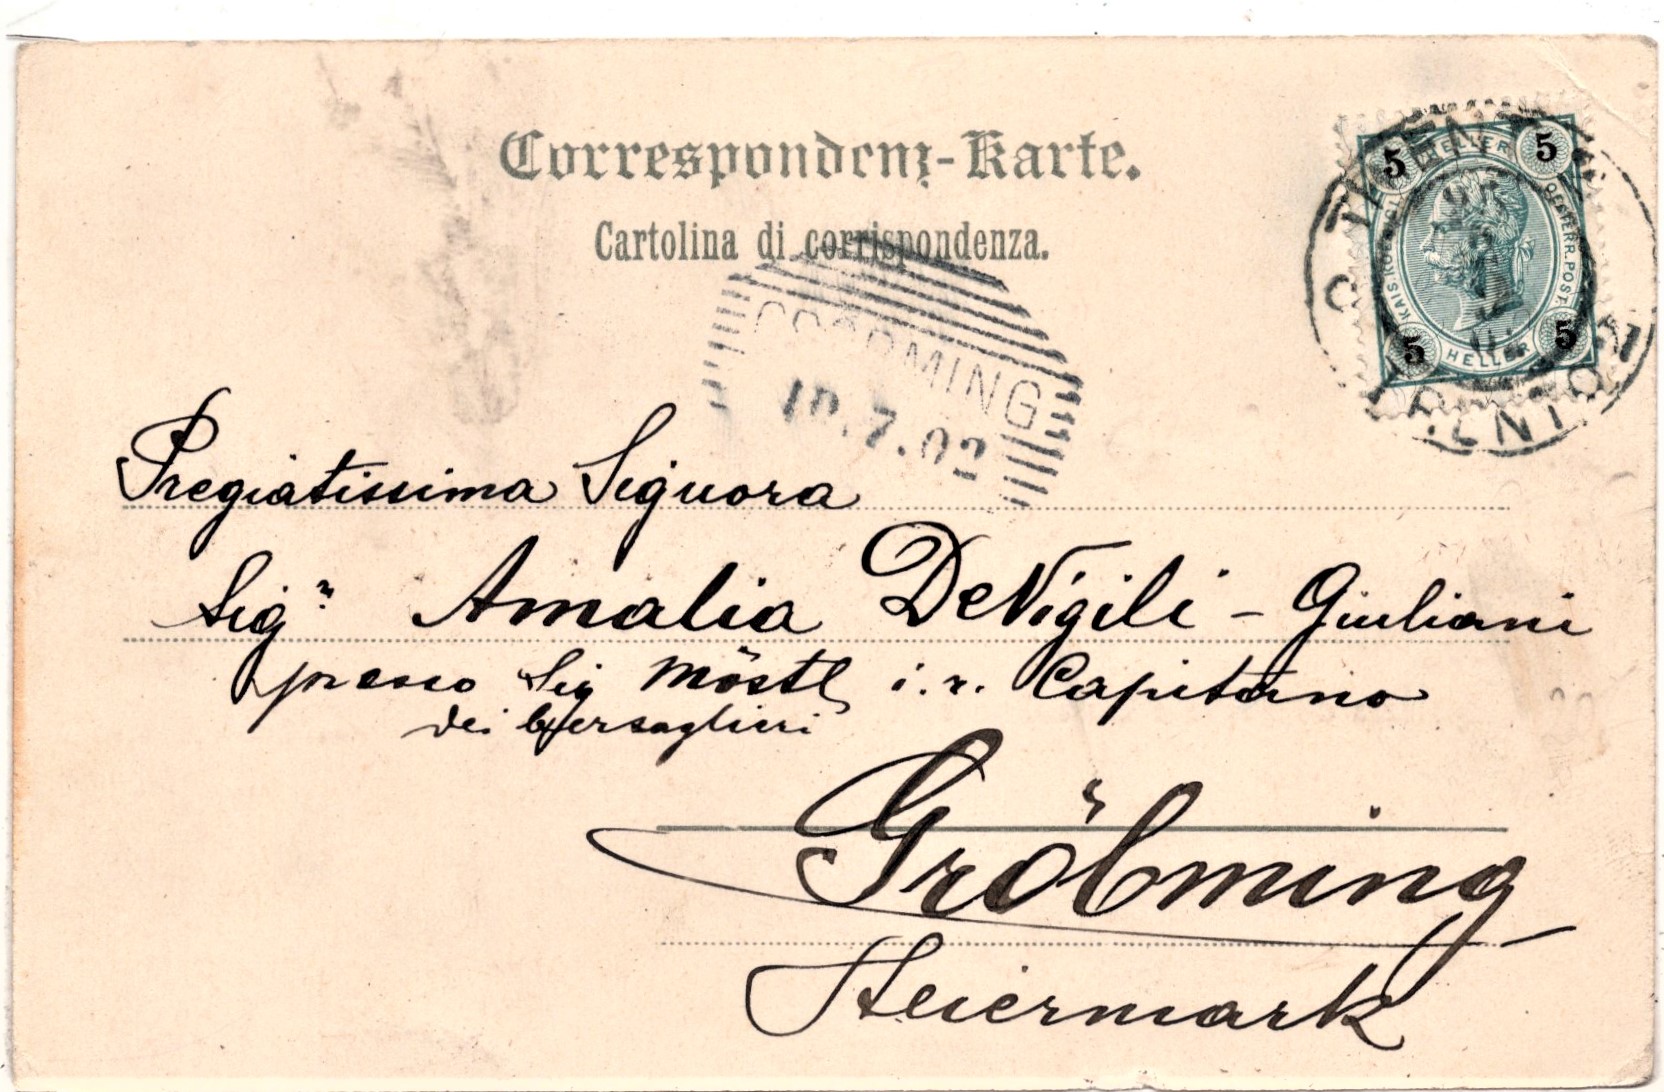 Correspondenz-Karte.
Cartolina di corrispondenza.
5 HELLER 5
KAIS. KÖNIGL. OESTERR. POST.
5 HELLER 5
TRIENT
TRENTO
GRÖBMING
10.7.02
Pregiatissima Signora
Sigʳᵃ Amalia DeVigili - Giuliani
presso Sig Möstl i. r. Capitano
dei bersaglieri
Gröbming
Steiermark